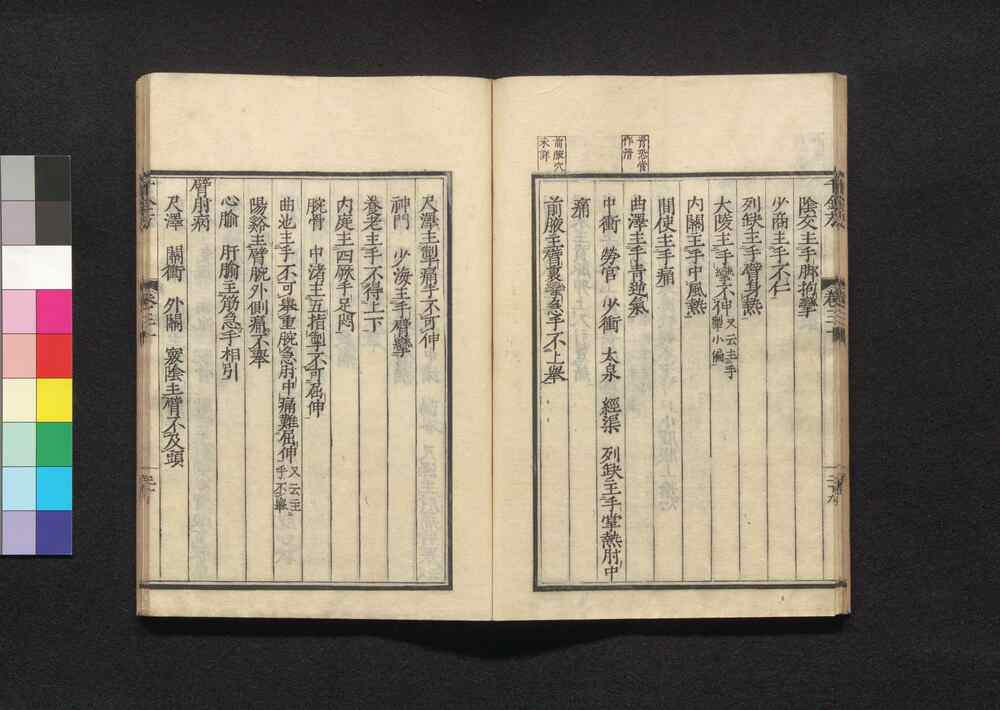 青恐脊
作青
前腋穴
未詳
陰交主手脚拘攣
少商主手不仁
列缺主手臂身熱
大陵主手攣不伸又云主手
掣小偏
內關主手中風熱
間使主手痛
曲澤主手青逆氣
中衝　勞宮　少衝　太泉　經渠　列缺主手掌熱肘中
痛
前腋主臂裏攣急手不上舉
尺澤主掣痛手不可伸
神門　少海主手臂攣
養老主手不得上下
內庭主四厥手足悶
腕骨　中渚主五指掣不可屈伸
曲池主手不可舉重腕急肘中痛難屈伸又云主
手不舉
陽谿主臂腕外側痛不舉
心腧　肝腧主筋急手相引
臂肘病
尺澤　關衝　外關　竅陰主臂不及頭
千金方
卷三十